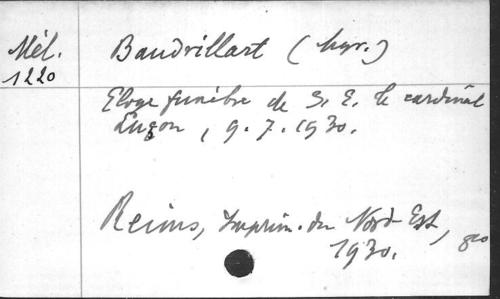 Mél.
1220
Baudrillart (Mgr.)
Eloge funèbre de S. E. le cardinal
Luçon, 9.7.1930.
Reims, Imprim. du Nord-Est,
1930.